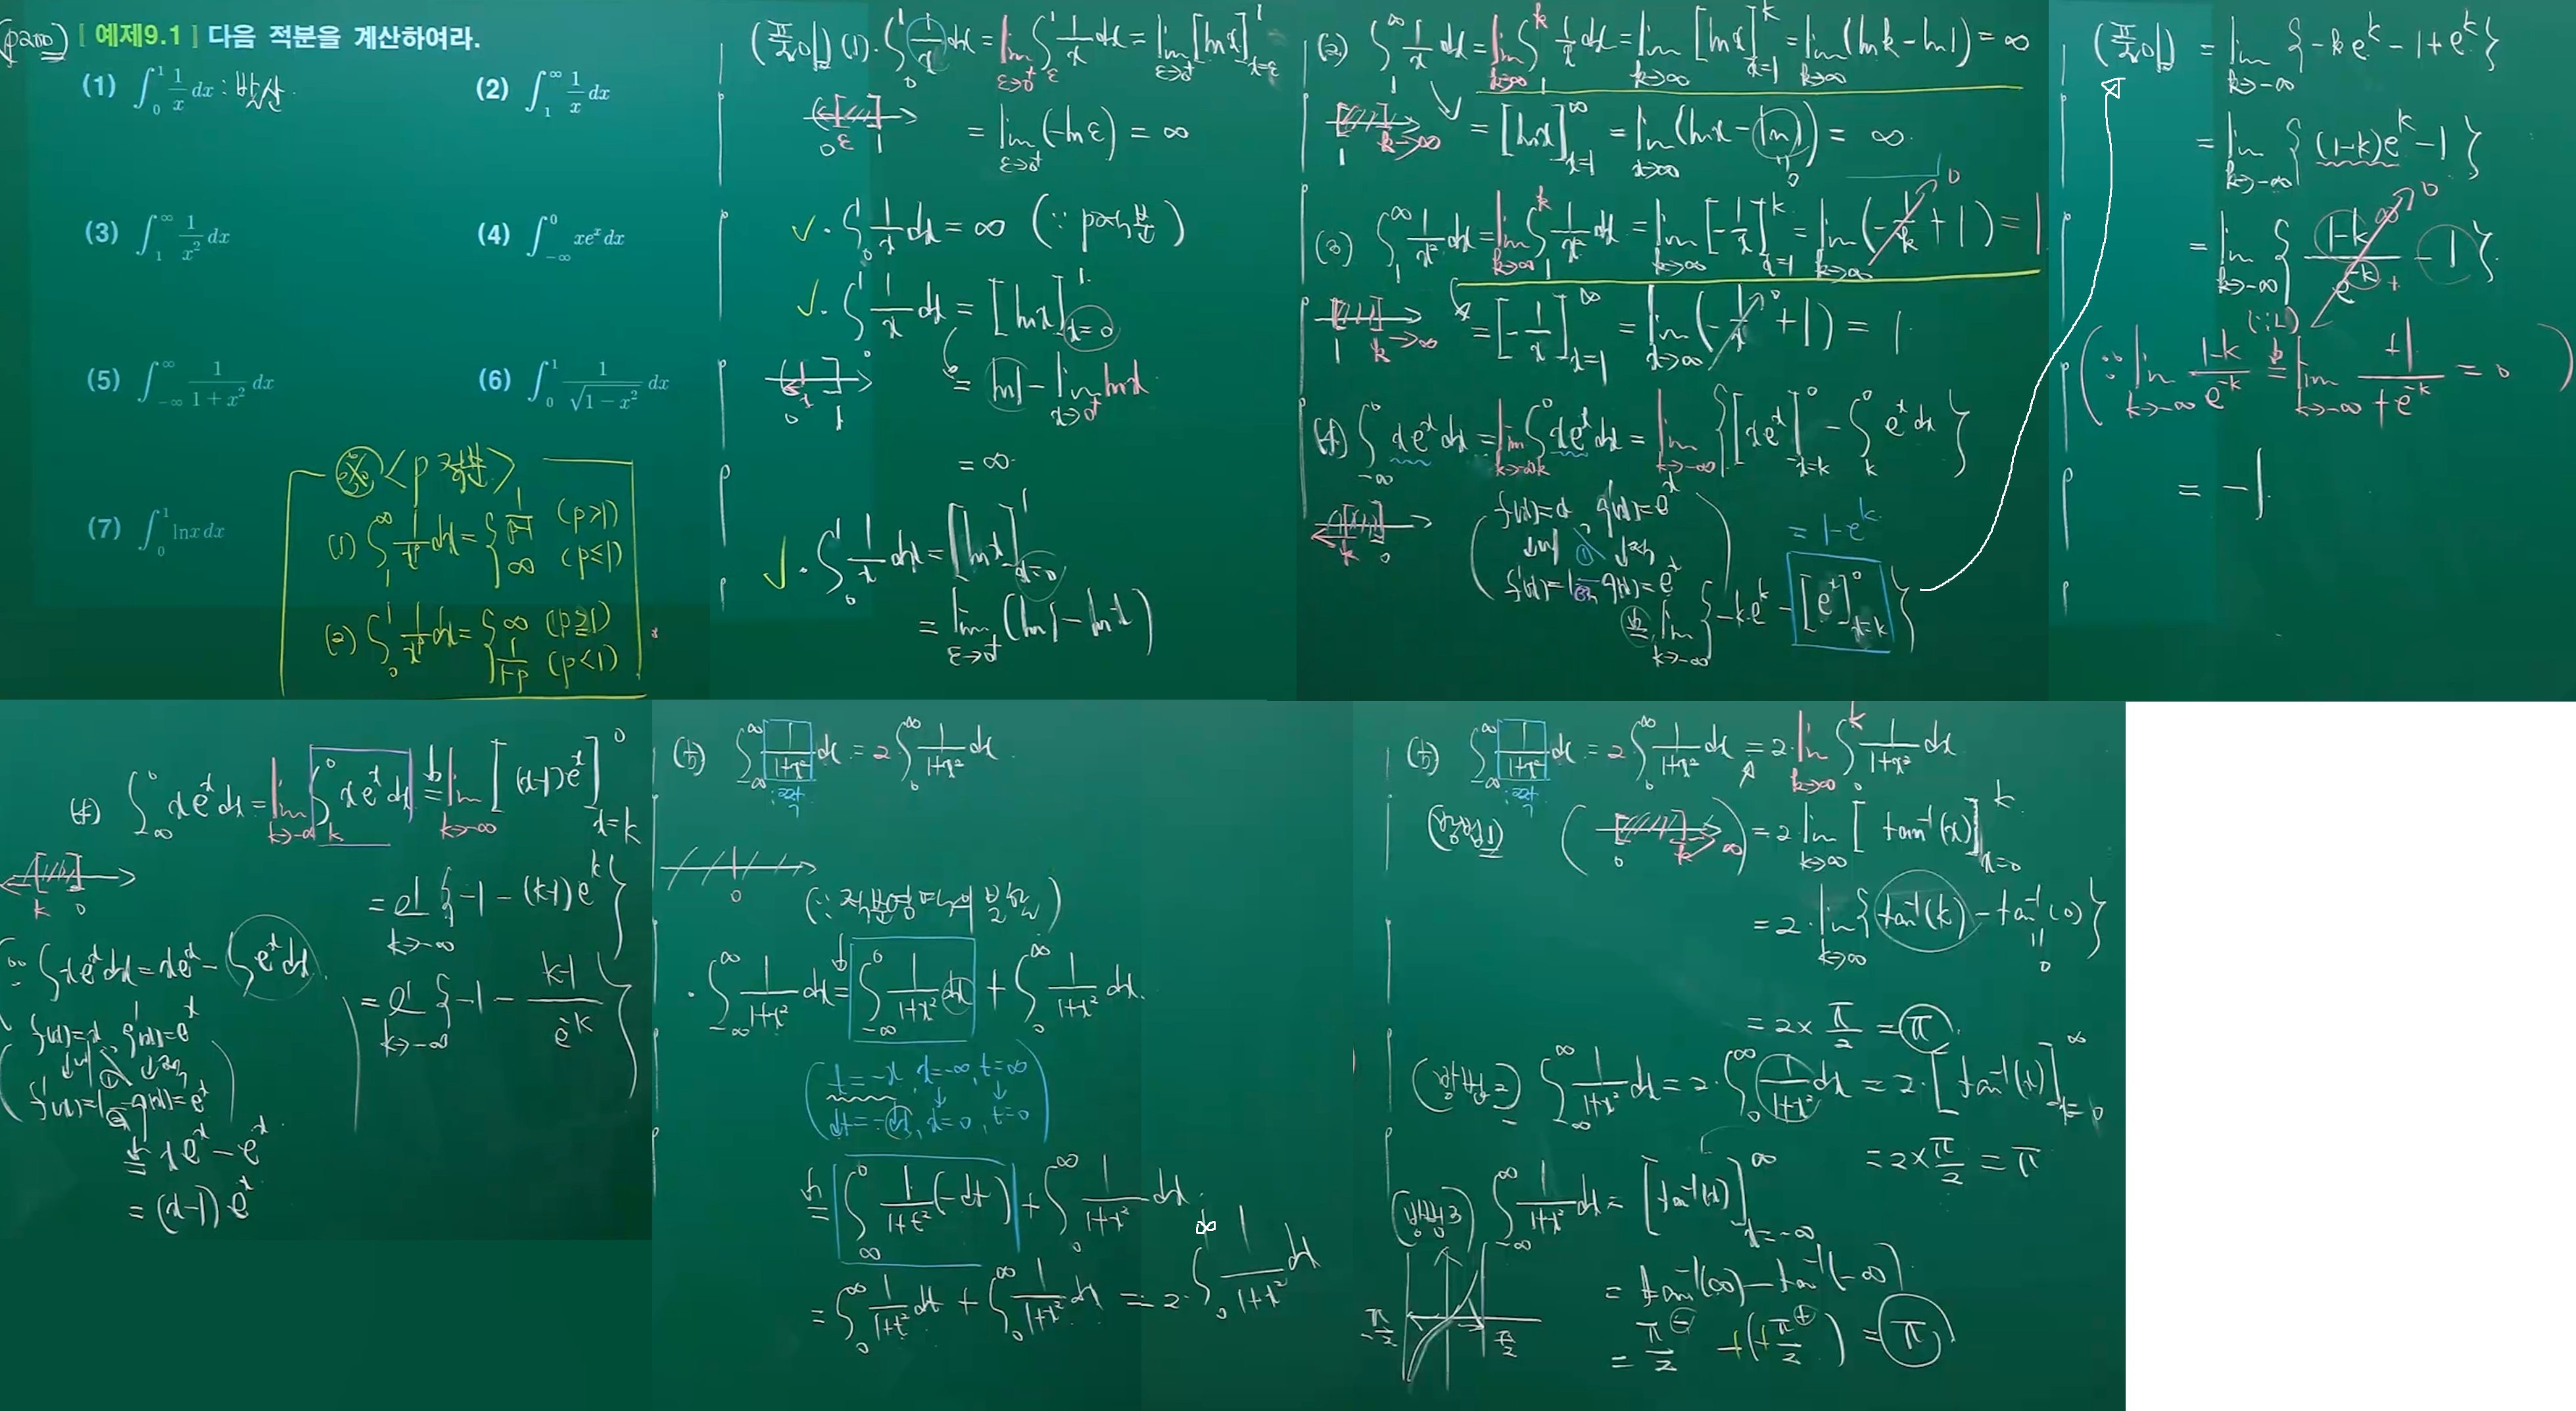 (p200) [ 예제9.1 ] 다음 적분을 계산하여라.
(1) ∫_0^1 1/x dx : 발산
(2) ∫_1^∞ 1/x dx
(3) ∫_1^∞ 1/x² dx
(4) ∫_{-∞}^0 xe^x dx
(5) ∫_{-∞}^∞ 1/(1+x²) dx
(6) ∫_0^1 1/√(1-x²) dx
(7) ∫_0^1 lnx dx
※ <p 적분>
(1) ∫_1^∞ 1/x^p dx = { 1/(p-1) (p>1)
∞ (p≤1)
(2) ∫_0^1 1/x^p dx = { ∞ (p≥1)
1/(1-p) (p<1)
(풀이) (1). ∫_0^1 1/x dx = lim_{ε→0⁺} ∫_ε^1 1/x dx = lim_{ε→0⁺} [lnx]_{x=ε}^1
0 ε 1
= lim_{ε→0⁺} (-lnε) = ∞
✓ · ∫_0^1 1/x dx = ∞ (∵ p적분)
✓ · ∫_0^1 1/x dx = [lnx]_{x=0}^1
0 x 1
= ln1 - lim_{x→0⁺} lnx
= ∞
✓ · ∫_0^1 1/x dx = [lnx]_{x=0}^1
= lim_{ε→0⁺} (ln1 - lnx)
(2) ∫_1^∞ 1/x dx = lim_{k→∞} ∫_1^k 1/x dx = lim_{k→∞} [lnx]_{x=1}^k = lim_{k→∞} (lnk - ln1) = ∞
1 k→∞
= [lnx]_{x=1}^∞ = lim_{x→∞} (lnx - ln1) = ∞
0
(3) ∫_1^∞ 1/x² dx = lim_{k→∞} ∫_1^k 1/x² dx = lim_{k→∞} [-1/x]_{x=1}^k = lim_{k→∞} (-1/k + 1) = 1
1 k→∞
= [-1/x]_{x=1}^∞ = lim_{x→∞} (-1/x + 1) = 1
(4) ∫_{-∞}^0 xe^x dx = lim_{k→-∞} ∫_k^0 xe^x dx = lim_{k→-∞} { [xe^x]_{x=k}^0 - ∫_k^0 e^x dx }
k 0
f(x)=x g'(x)=e^x
↓미 ① ↓적
f'(x)=1 ② g(x)=e^x
= 1-e^k
= lim_{k→-∞} { -k·e^k - [e^x]_{x=k}^0 }
(풀이) = lim_{k→-∞} { -ke^k - 1 + e^k }
= lim_{k→-∞} { (1-k)e^k - 1 }
= lim_{k→-∞} { (1-k)/e^{-k} - 1 }
(∵ lim_{k→-∞} (1-k)/e^{-k} = lim_{k→-∞} +1/+e^{-k} = 0 )
(∵L)
= -1
(4) ∫_{-∞}^0 xe^x dx = lim_{k→-∞} ∫_k^0 xe^x dx = lim_{k→-∞} [ (x-1)e^x ]_{x=k}^0
k 0
= lim_{k→-∞} { -1 - (k-1)e^k }
= lim_{k→-∞} { -1 - (k-1)/e^{-k} }
∵ ∫xe^x dx = xe^x - ∫e^x dx
f(x)=x g'(x)=e^x
↓미 ① ↓적
f'(x)=1 ② g(x)=e^x
= xe^x - e^x
= (x-1)e^x
(5) ∫_{-∞}^∞ 1/(1+x²) dx = 2 ∫_0^∞ 1/(1+x²) dx
0
· ∫_{-∞}^∞ 1/(1+x²) dx = ∫_{-∞}^0 1/(1+x²) dx + ∫_0^∞ 1/(1+x²) dx
( t=-x, x=-∞, t=∞
dt=-dx, x=0, t=0 )
= ∫_∞^0 1/(1+t²) (-dt) + ∫_0^∞ 1/(1+x²) dx
= ∫_0^∞ 1/(1+t²) dt + ∫_0^∞ 1/(1+x²) dx = 2·∫_0^∞ 1/(1+x²) dx
(5) ∫_{-∞}^∞ 1/(1+x²) dx = 2 ∫_0^∞ 1/(1+x²) dx = 2·lim_{k→∞} ∫_0^k 1/(1+x²) dx
(방법1) ( 0 k→∞ ) = 2·lim_{k→∞} [ tan⁻¹(x) ]_{x=0}^k
= 2·lim_{k→∞} { tan⁻¹(k) - tan⁻¹(0) }
0
= 2 × π/2 = π
(방법2) ∫_{-∞}^∞ 1/(1+x²) dx = 2·∫_0^∞ 1/(1+x²) dx = 2·[ tan⁻¹(x) ]_{x=0}^∞
= 2×π/2 = π
(방법3) ∫_{-∞}^∞ 1/(1+x²) dx = [ tan⁻¹(x) ]_{x=-∞}^∞
= tan⁻¹(∞) - tan⁻¹(-∞)
-π/2 π/2
= π/2⁻ + (+π/2⁺) = π